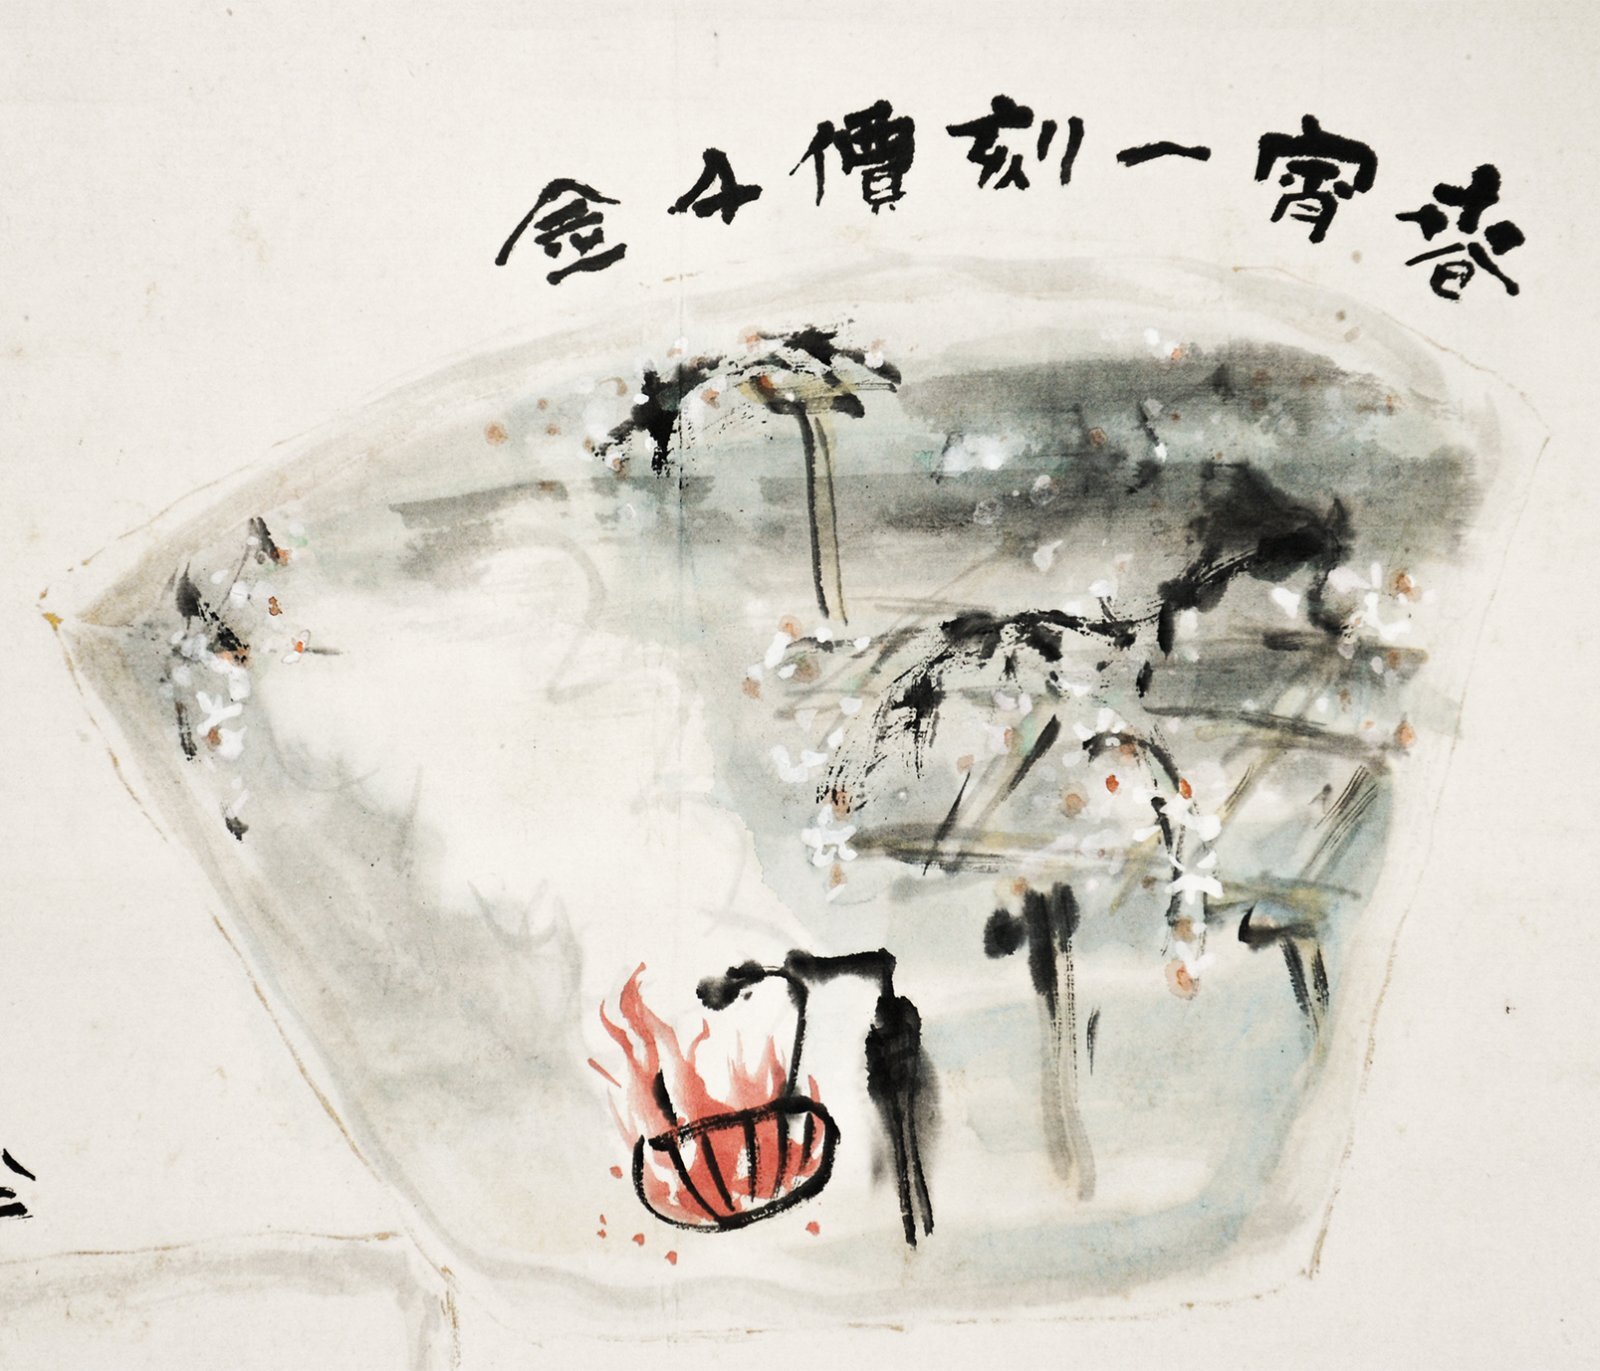 春宵一刻價千金